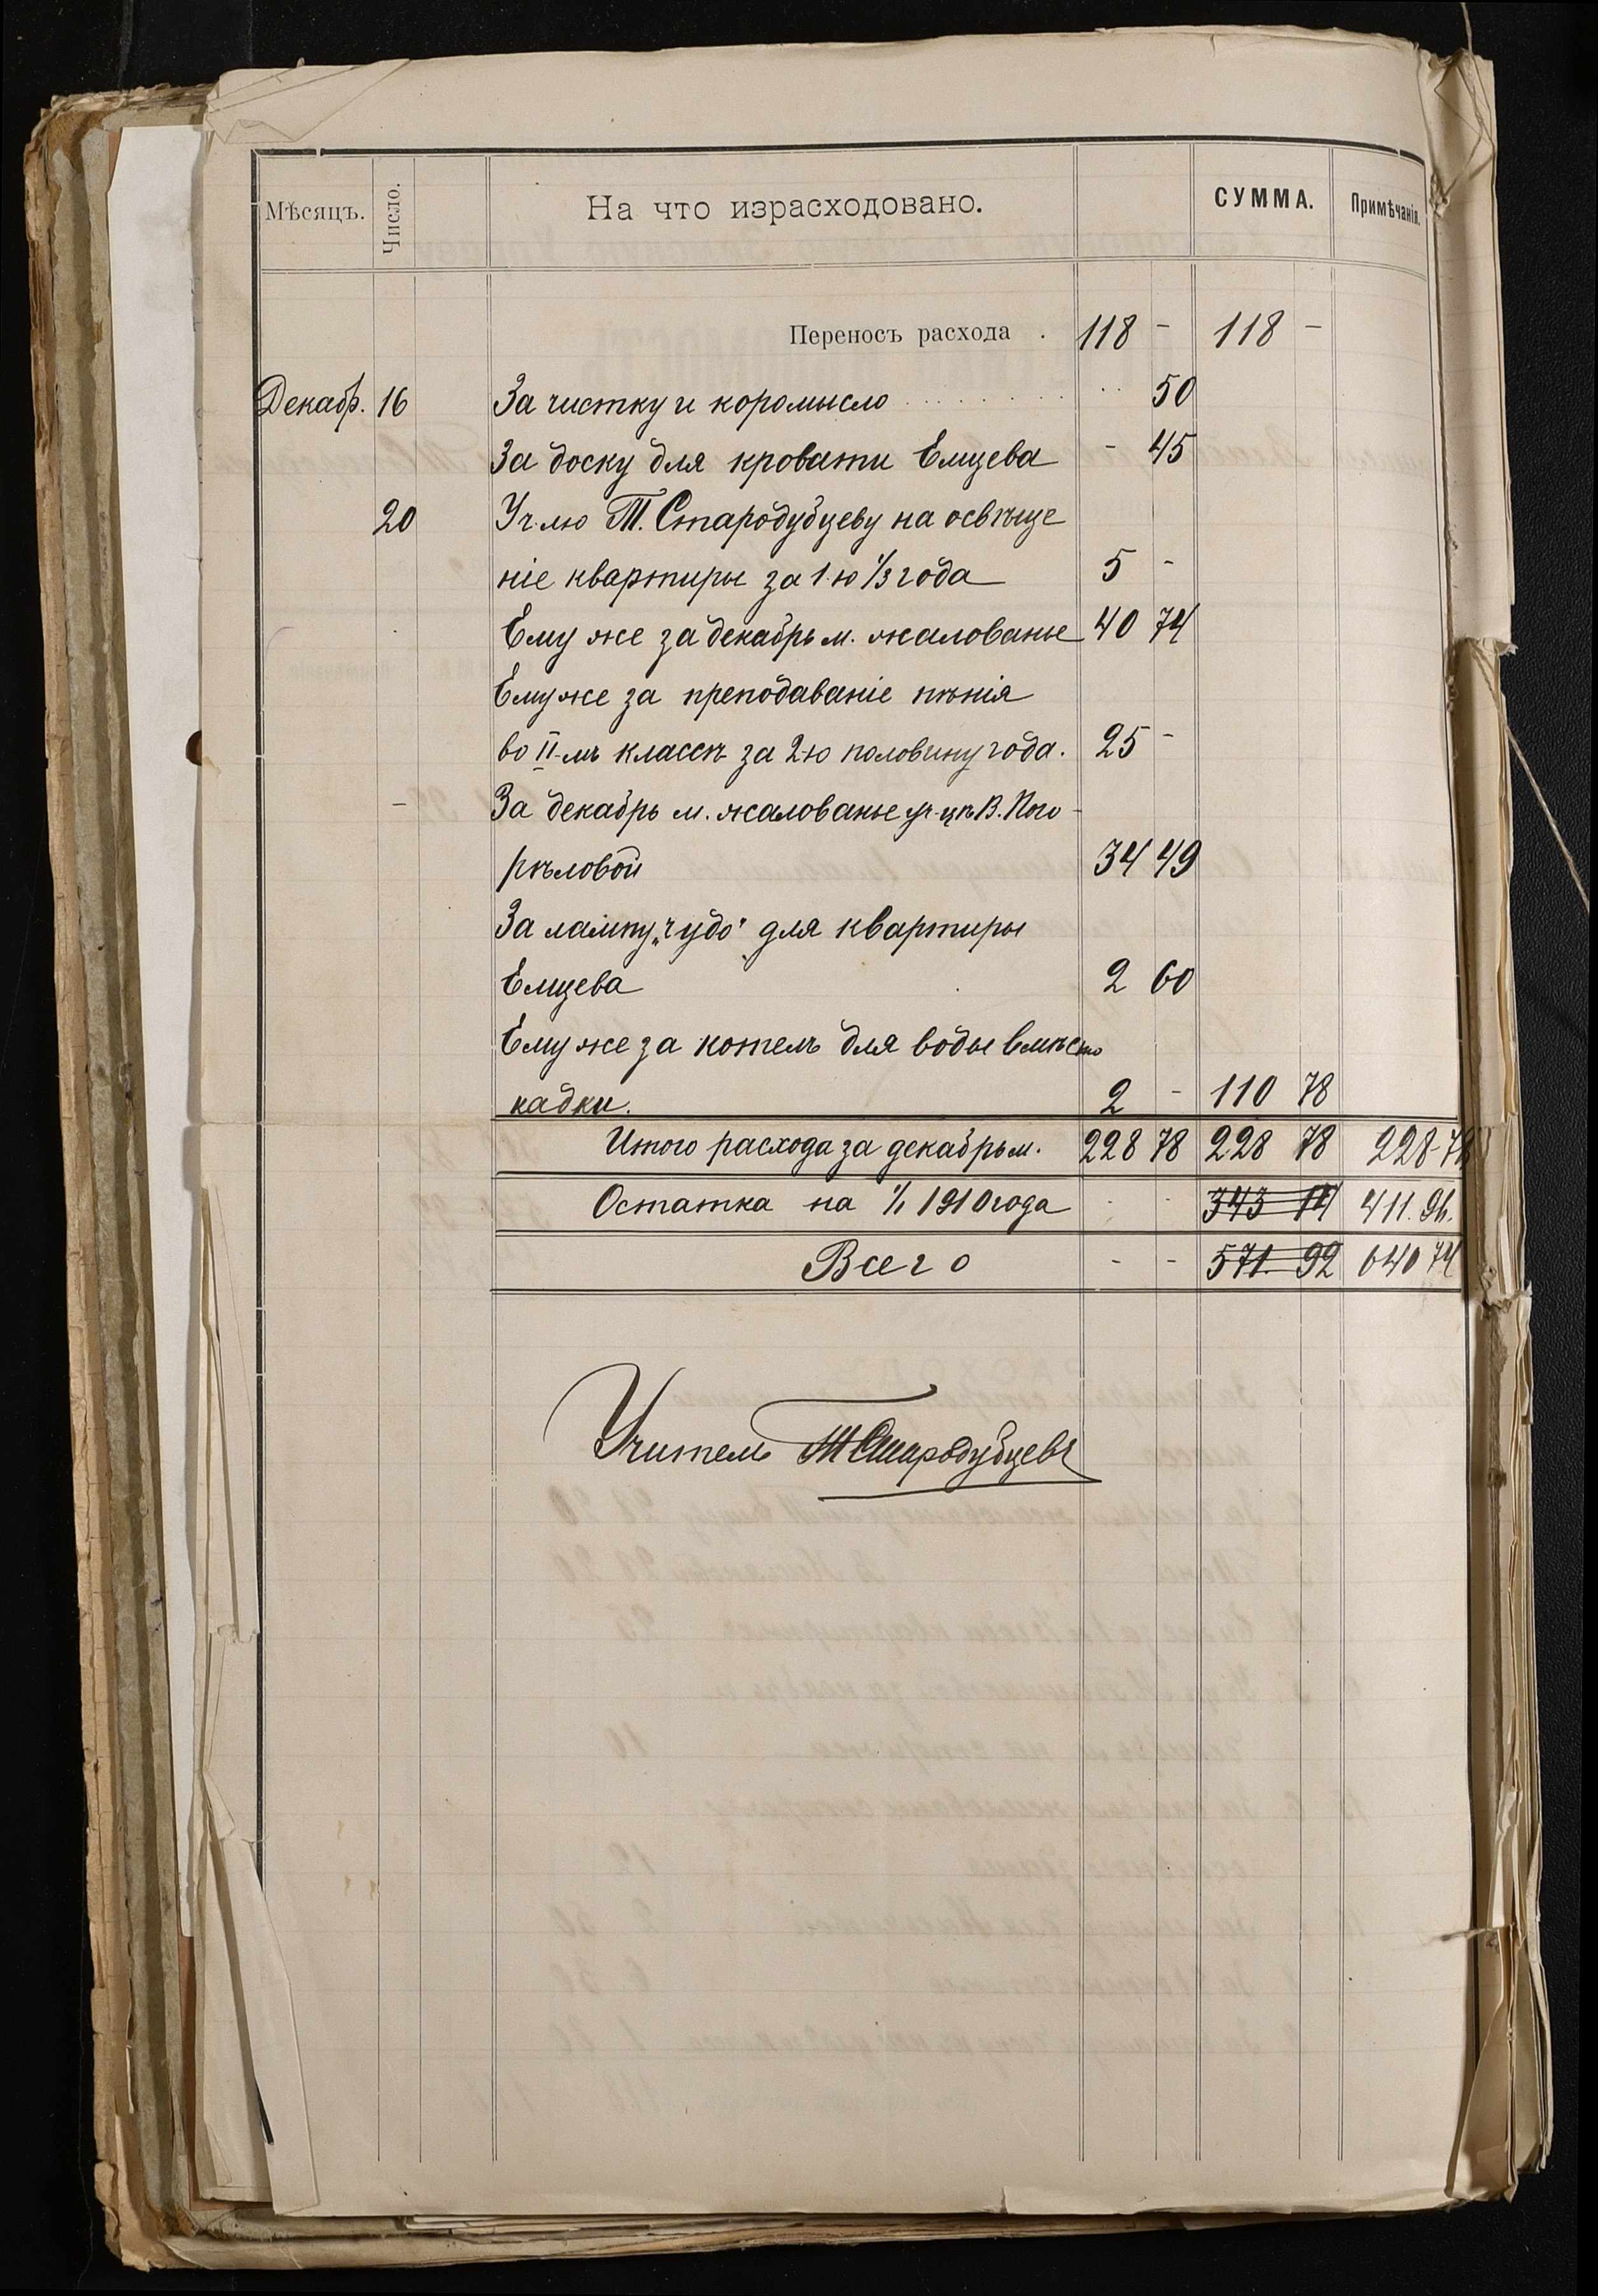 Мѣсяцъ. Число. На что израсходовано. СУММА. Примѣчанія.
Переносъ расхода . 118 - 118 -
Декабр. 16 За чистку и коромысло 50
За доску для кровати Емцева - 45
20 Уч-лю Т. Стародубцеву на освѣще
ніе квартиры за 1-ю 1/3 года 5 -
Ему же за декабрь м. жалованье 40 74
Ему же за преподаваніе пѣнія
во II-мъ классѣ за 2-ю половину года. 25 -
- За декабрь м. жалованье уч-цѣ В. Пого-
рѣловой 34 49
За лампу „чудо" для квартиры
Емцева 2 60
Ему же за котелъ для воды вмѣсто
кадки. 2 - 110 78
Итого расхода за декабрь м. 228 78 228 78 228-78
Остатка на 1/1 1910 года - - 343 14 411. 96.
Всего - - 571. 92 640 74
Учитель ТСтародубцевъ